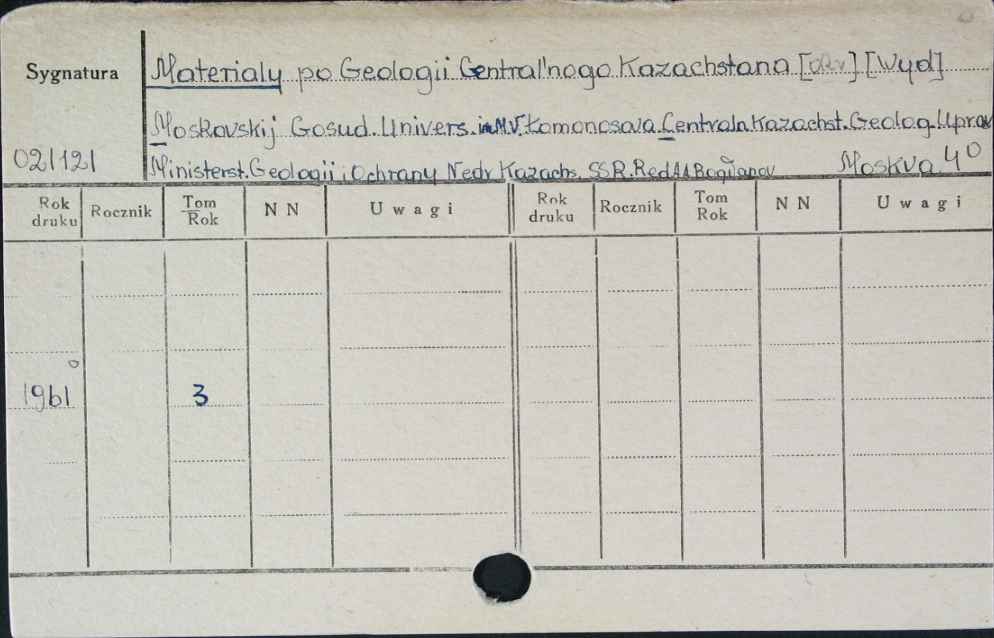 Sygnatura
Materialy po Geologii Central'nogo Kazachstana [Wyd]
Moskovskij Gosud. Univers. im M.V. Łomonosova Centraln. Kazachst. Geolog. Uprav
02/121
Ministerst. Geologii i Ochrany Nedr Kazachs. SSR. Red. Bogdanov Moskva 4°
Rok druku Rocznik Tom Rok NN Uwagi Rok druku Rocznik Tom Rok NN Uwagi
1961 3